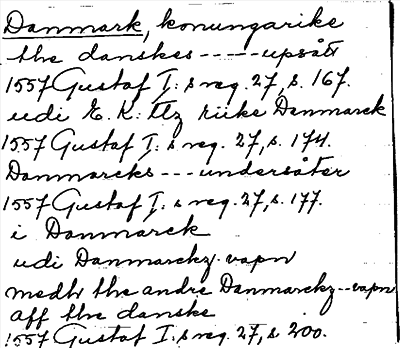 Danmark, konungarike
the danskes ----- upsått
1557 Gustaf I: s reg. 27, s. 167.
udi E. K: ttz riike Danmarck
1557 Gustaf I: s reg. 27, s. 174.
Danmarcks --- undersåter
1557 Gustaf I: s reg. 27, s. 177.
i Danmarck
udi Danmarckz vapn
medh the andre Danmarckz -- vapn
aff the danske
1557 Gustaf I: s reg. 27, s. 200.